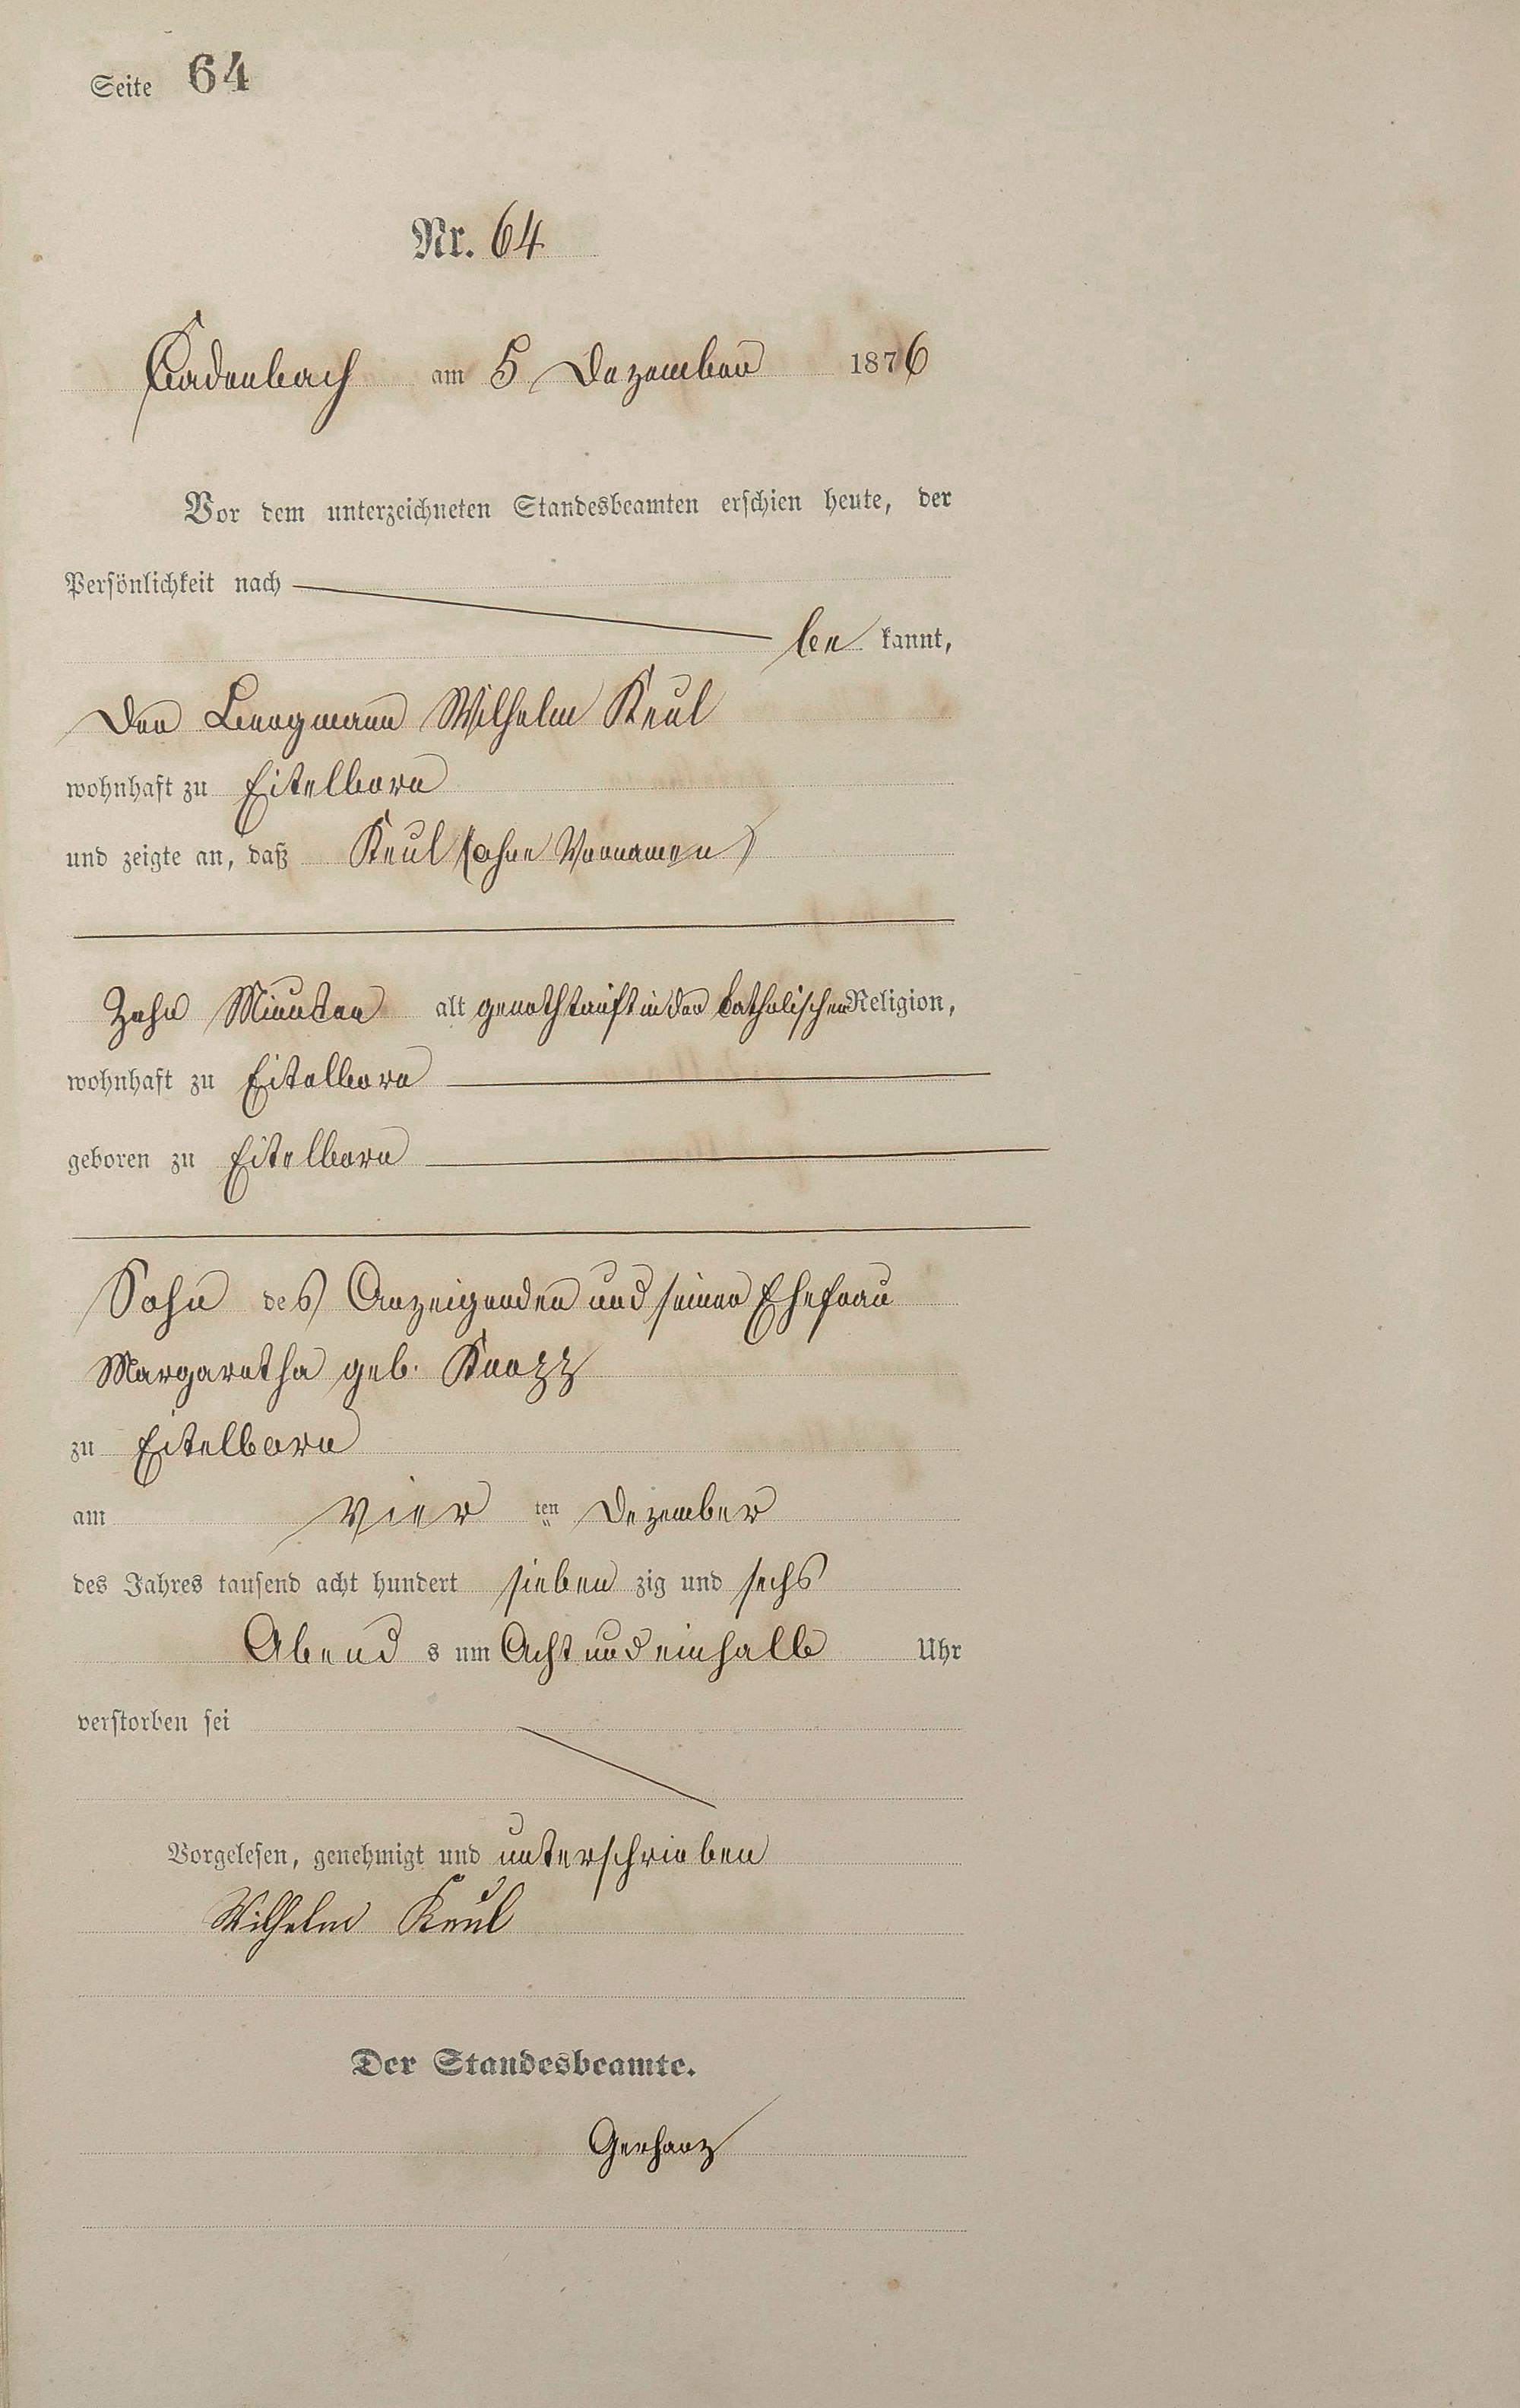 Seite 64
Nr. 64
Cadenbach am 5 Dezember 1876
Vor dem unterzeichneten Standesbeamten erschien heute, der
Persönlichkeit nach
be kannt,
Der Bergmann Wilhelm Keul
wohnhaft zu Eitelborn
und zeigte an, daß Keul (ohne Vornamen)
Zehn Minuten alt genothtauft in der katholischen Religion,
wohnhaft zu Eitelborn
geboren zu Eitelborn
Sohn des Anzeigenden und seiner Ehefrau
Margaretha geb.
zu Eitelborn
am vier ten Dezember
des Jahres tausend acht hundert sieben zig und sechs
Abend s um Acht und einhalb Uhr
verstorben sei
Vorgelesen, genehmigt und unterschrieben
Wilhelm Keul
Der Standesbeamte.
Gerharz